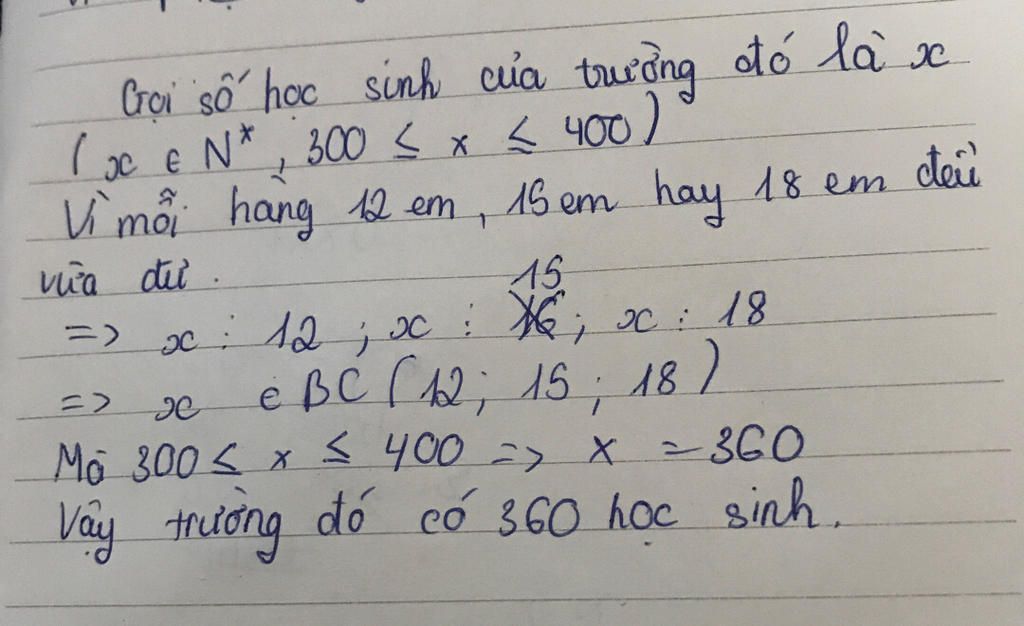 Gọi số học sinh của trường đó là x
( x ∈ N*, 300 ≤ x ≤ 400 )
Vì mỗi hàng 12 em, 15 em hay 18 em đều
vừa đủ.
=> x ⋮ 12 ; x ⋮ 15 ; x ⋮ 18
=> x ∈ BC ( 12 ; 15 ; 18 )
Mà 300 ≤ x ≤ 400 => x = 360
Vậy trường đó có 360 học sinh.